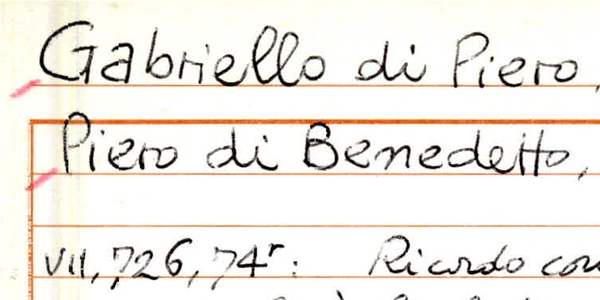 Gabriello di Piero,
Piero di Benedetto,
VII, 726, 74r: Ricordo con